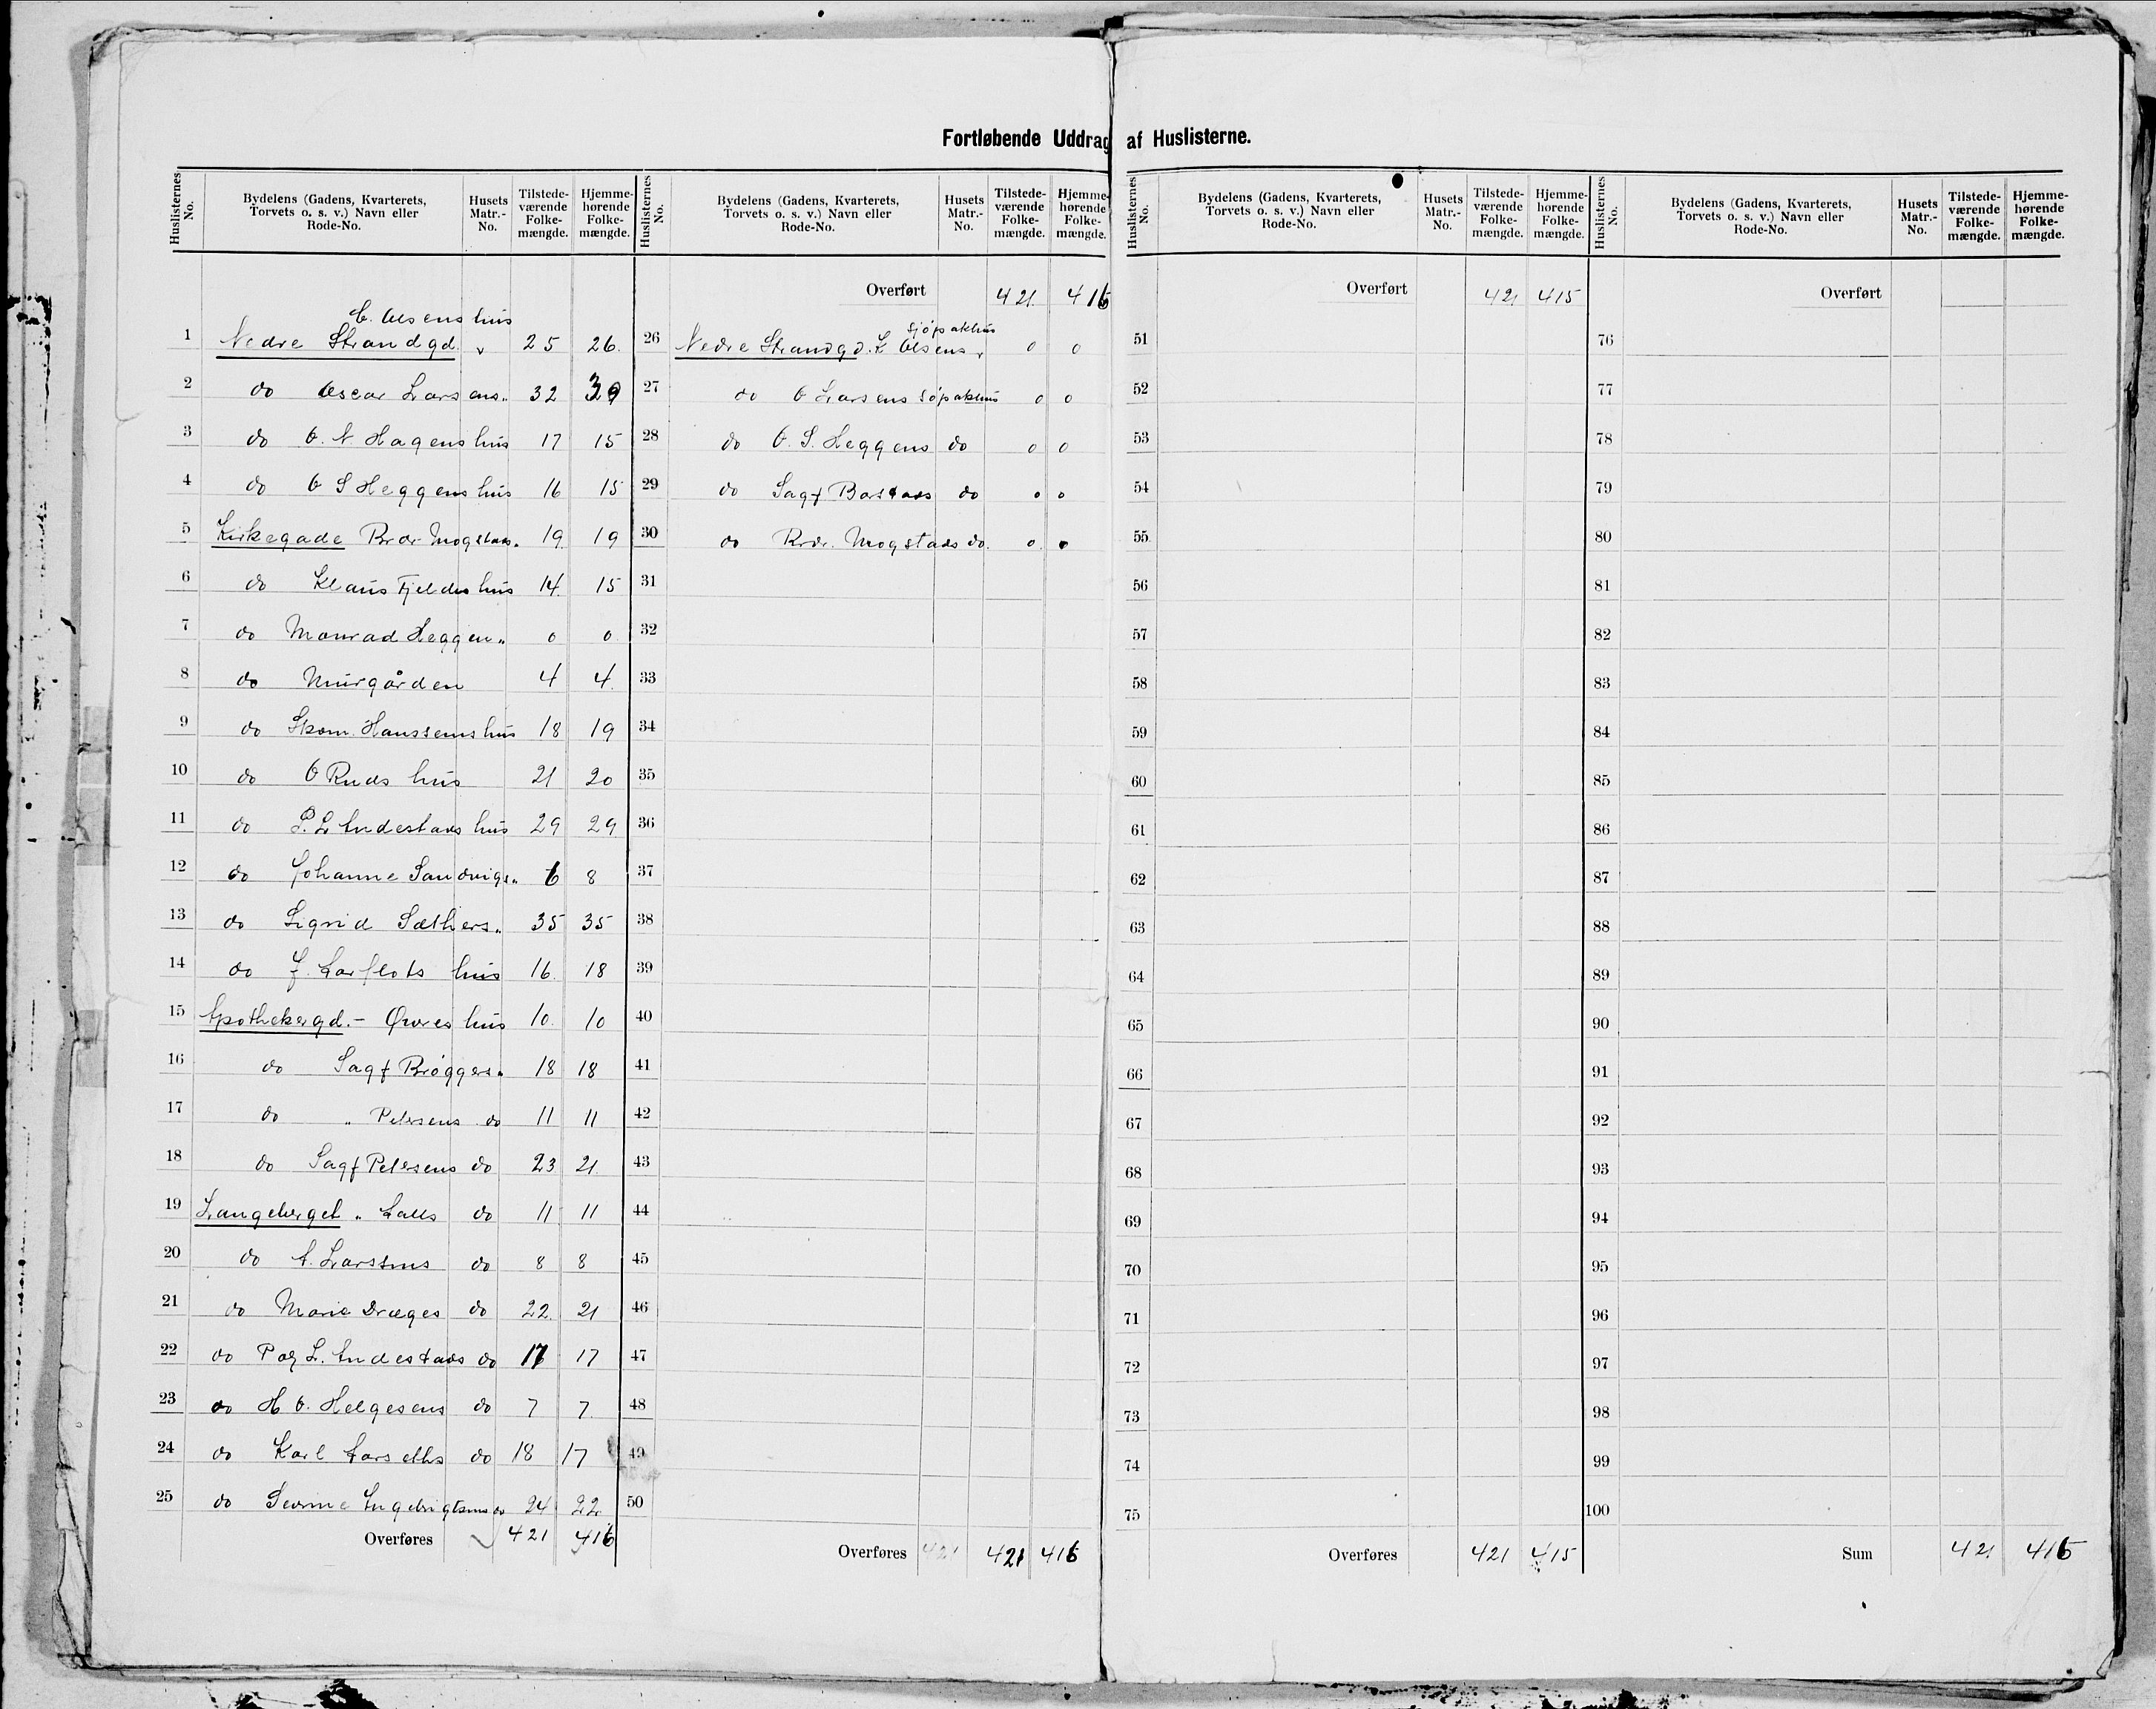 Fortløbende Uddrag af Huslisterne.
Huslisternes No. Bydelens (Gadens, Kvarterets, Torvets o. s. v.) Navn eller Rode-No. Husets Matr.-No. Tilstedeværende Folkemængde. Hjemmehørende Folkemængde.
C. Olsens hus
1 Nedre Strandgd. 25 26.
2 do Oscar Larsens „ 32 30
3 do O. N. Hagens hus 17 15
4 do O S Heggens hus 16 15
5 Kirkegade Brdr Mogstads „ 19. 19
6 do Klaus Fjeldes hus 14. 15
7 do Monrad Heggen „ 0 0
8 do Murgården 4 4.
9 do Skom. Hanssens hus 18 19
10 do O Ruds hus 21 20
11 do P. L Andestads hus 29 29
12 do Johanne Sandvigs „ 6 8
13 do Sigrid Sæthers „ 35 35
14 do hus 16. 18
15 Apothekergd. - Øwres hus 10. 10
16 do Sagf Brøggers „ 18 18
17 do „ Petersens do 11 11
18 do Sagf Petersens do 23 21.
19 Langeberget „ do 11 11
20 do A. Larssens do 8 8
21 do Marie Dræges do 22. 21
22 do L. Andestads do 17 17
23 do H O. Helgesens do 7 7.
24 do Karl Aarseths do 18 17
25 do Severine Ingebrigtsens do 24 22
Overføres 421 415
Huslisternes No. Bydelens (Gadens, Kvarterets, Torvets o. s. v.) Navn eller Rode-No. Husets Matr.-No. Tilstedeværende Folkemængde. Hjemmehørende Folkemængde.
Overført 421. 415
Sjøpakhus
26 Nedre Strandgd. Olsens „ 0 0
27 do O Larsens Søpakhus 0 0
28 do O. S. Heggens do 0 0
29 do Sagf Barstads do 0 0
30 do Brdr. Mogstads do. 0. 0
31
32
33
34
35
36
37
38
39
40
41
42
43
44
45
46
47
48
49
50
Overføres 421 421 415
Huslisternes No. Bydelens (Gadens, Kvarterets, Torvets o. s. v.) Navn eller Rode-No. Husets Matr.-No. Tilstedeværende Folkemængde. Hjemmehørende Folkemængde.
Overført 421 415
51
52
53
54
55
56
57
58
59
60
61
62
63
64
65
66
67
68
69
70
71
72
73
74
75
Overføres 421 415
Huslisternes No. Bydelens (Gadens, Kvarterets, Torvets o. s. v.) Navn eller Rode-No. Husets Matr.-No. Tilstedeværende Folkemængde. Hjemmehørende Folkemængde.
Overført
76
77
78
79
80
81
82
83
84
85
86
87
88
89
90
91
92
93
94
95
96
97
98
99
100
Sum 421 415